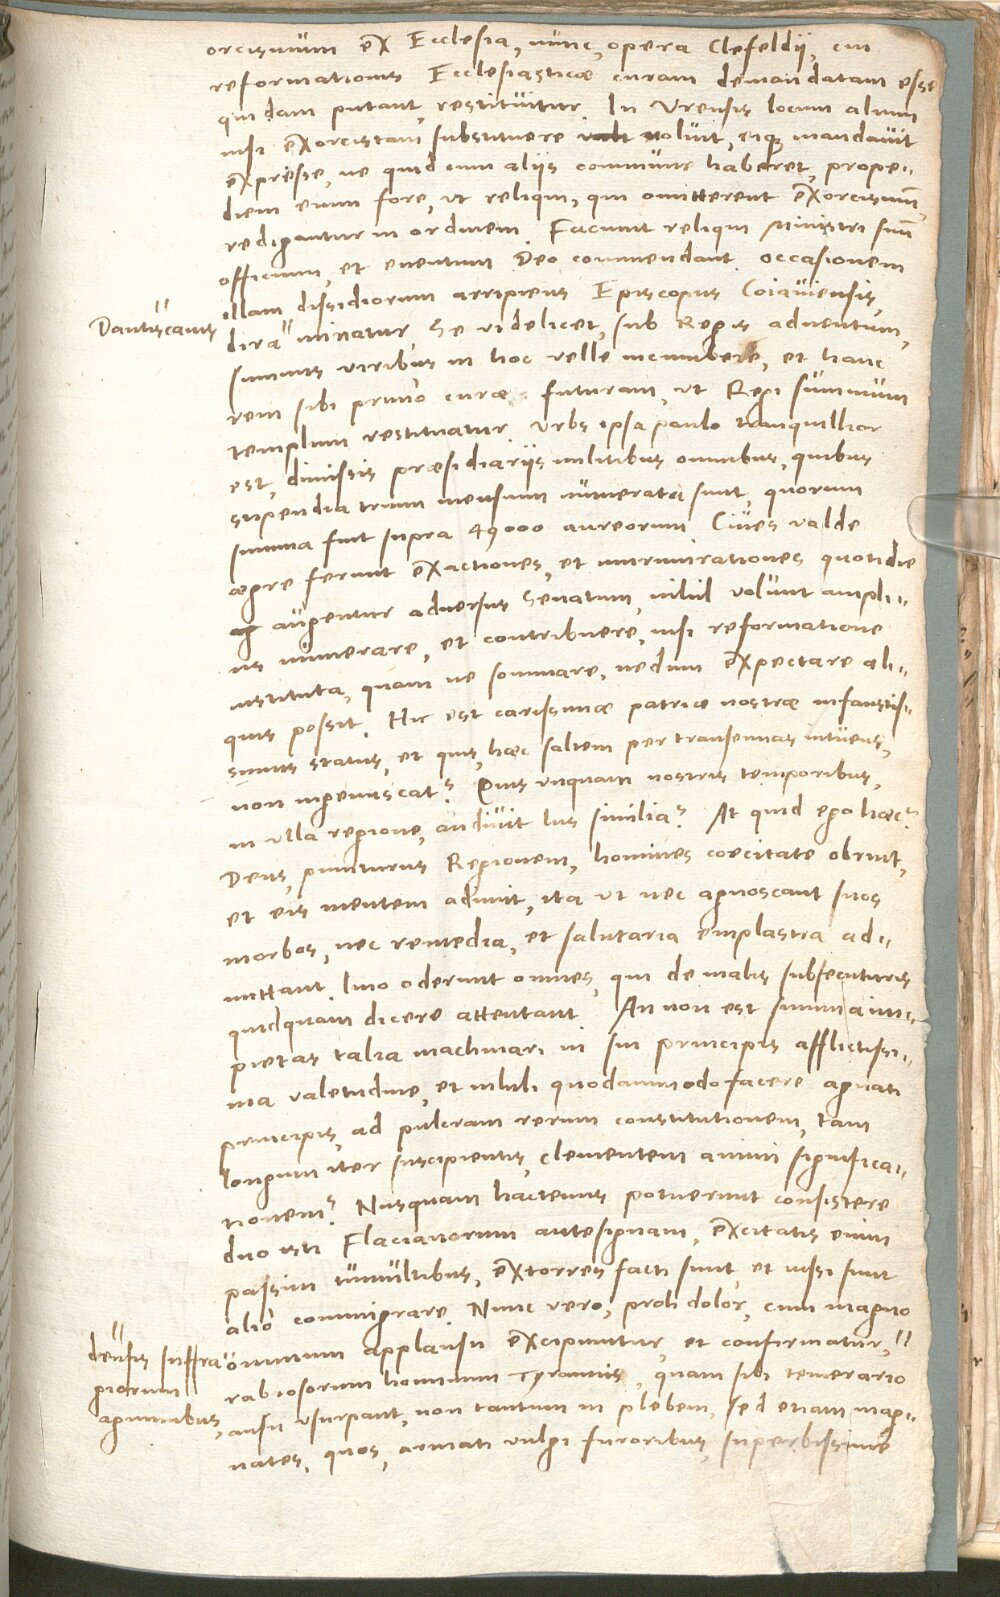 orcismum ex Ecclesia, nunc, opera Clefeldii, cui
reformationis Ecclesiasticæ curam demandatam esse
quidam putant, restituitur. In Urensis locum alium
nisi exorcistam substituere noluit, eiq; mandavit
expresse, ne quid cum aliis commune haberet, prope¬
diem enim fore, ut reliqui, qui omitterent exorcismū,
redigantur in ordinem. Faciunt reliqui Ministri suū
officium, et eventum Deo commendant. Occasionem
illam dissidiorum arripiens Episcopus Coiaviensis,
Dantiscanis
dira" minatur, Se videlicet, sub Regis adventum,
summis viribus in hoc velle incumbere, et hanc
rem sibi primo curæ futuram, ut Regi summum
templum restituatur. Urbs ipsa paulo tranquillior
est, dimissis præsidiariis militibus omnibus, quibus
stipendia trium mensium numerata sunt, quorum
summa fuit supra 49000 aureorum. Cives valde
ægre ferunt exactiones, et murmurationes quotidie
augentur adversus Senatum, nihil volunt ampli¬
us numerare, et contribuere, nisi reformatione
instituta, quam ne somniare, nedum expectare ali¬
quis possit. Hic est carissimæ patriæ nostræ infaustis¬
simus status, et quis, hæc saltem per transennas intuens,
non ingemiscat? Quis unquam nostris temporibus,
in ulla regione, audivit his similia? At quid ego hæc?
Deus, puniturus Regionem, homines coecitate obruit,
et eis mentem adimit, ita ut nec agnoscant suos
morbos, nec remedia, et salutaria emplastra ad¬
mittant. Imo oderunt omnes, qui de malis subsecuturis
quidquam dicere attentant. An non est summa im¬
pietas talia machinari in sui principis afflictissi¬
ma valetudine, et nihili quodammodo facere agnati
principis, ad pulcram rerum constitutionem, tam
longum iter suscipientis, clementem animi significa¬
tionem? Nusquam hactenus potuerunt consistere
duo isti Flacianorum antesignani, excitatis enim
passim tumultibus, extorres facti sunt, et iussi sunt
alio commigrare. Nunc vero, proh dolor, cum magno
omnium applausu excipiuntur, et confirmatur,"
densis suffra
giorum
agminibus,
rabiosorum hominum Tyrannis, quam sibi temerario
ausu usurpant, non tantum in plebem, sed etiam mag¬
nates, quos, armati vulgi furoribus, superbissime